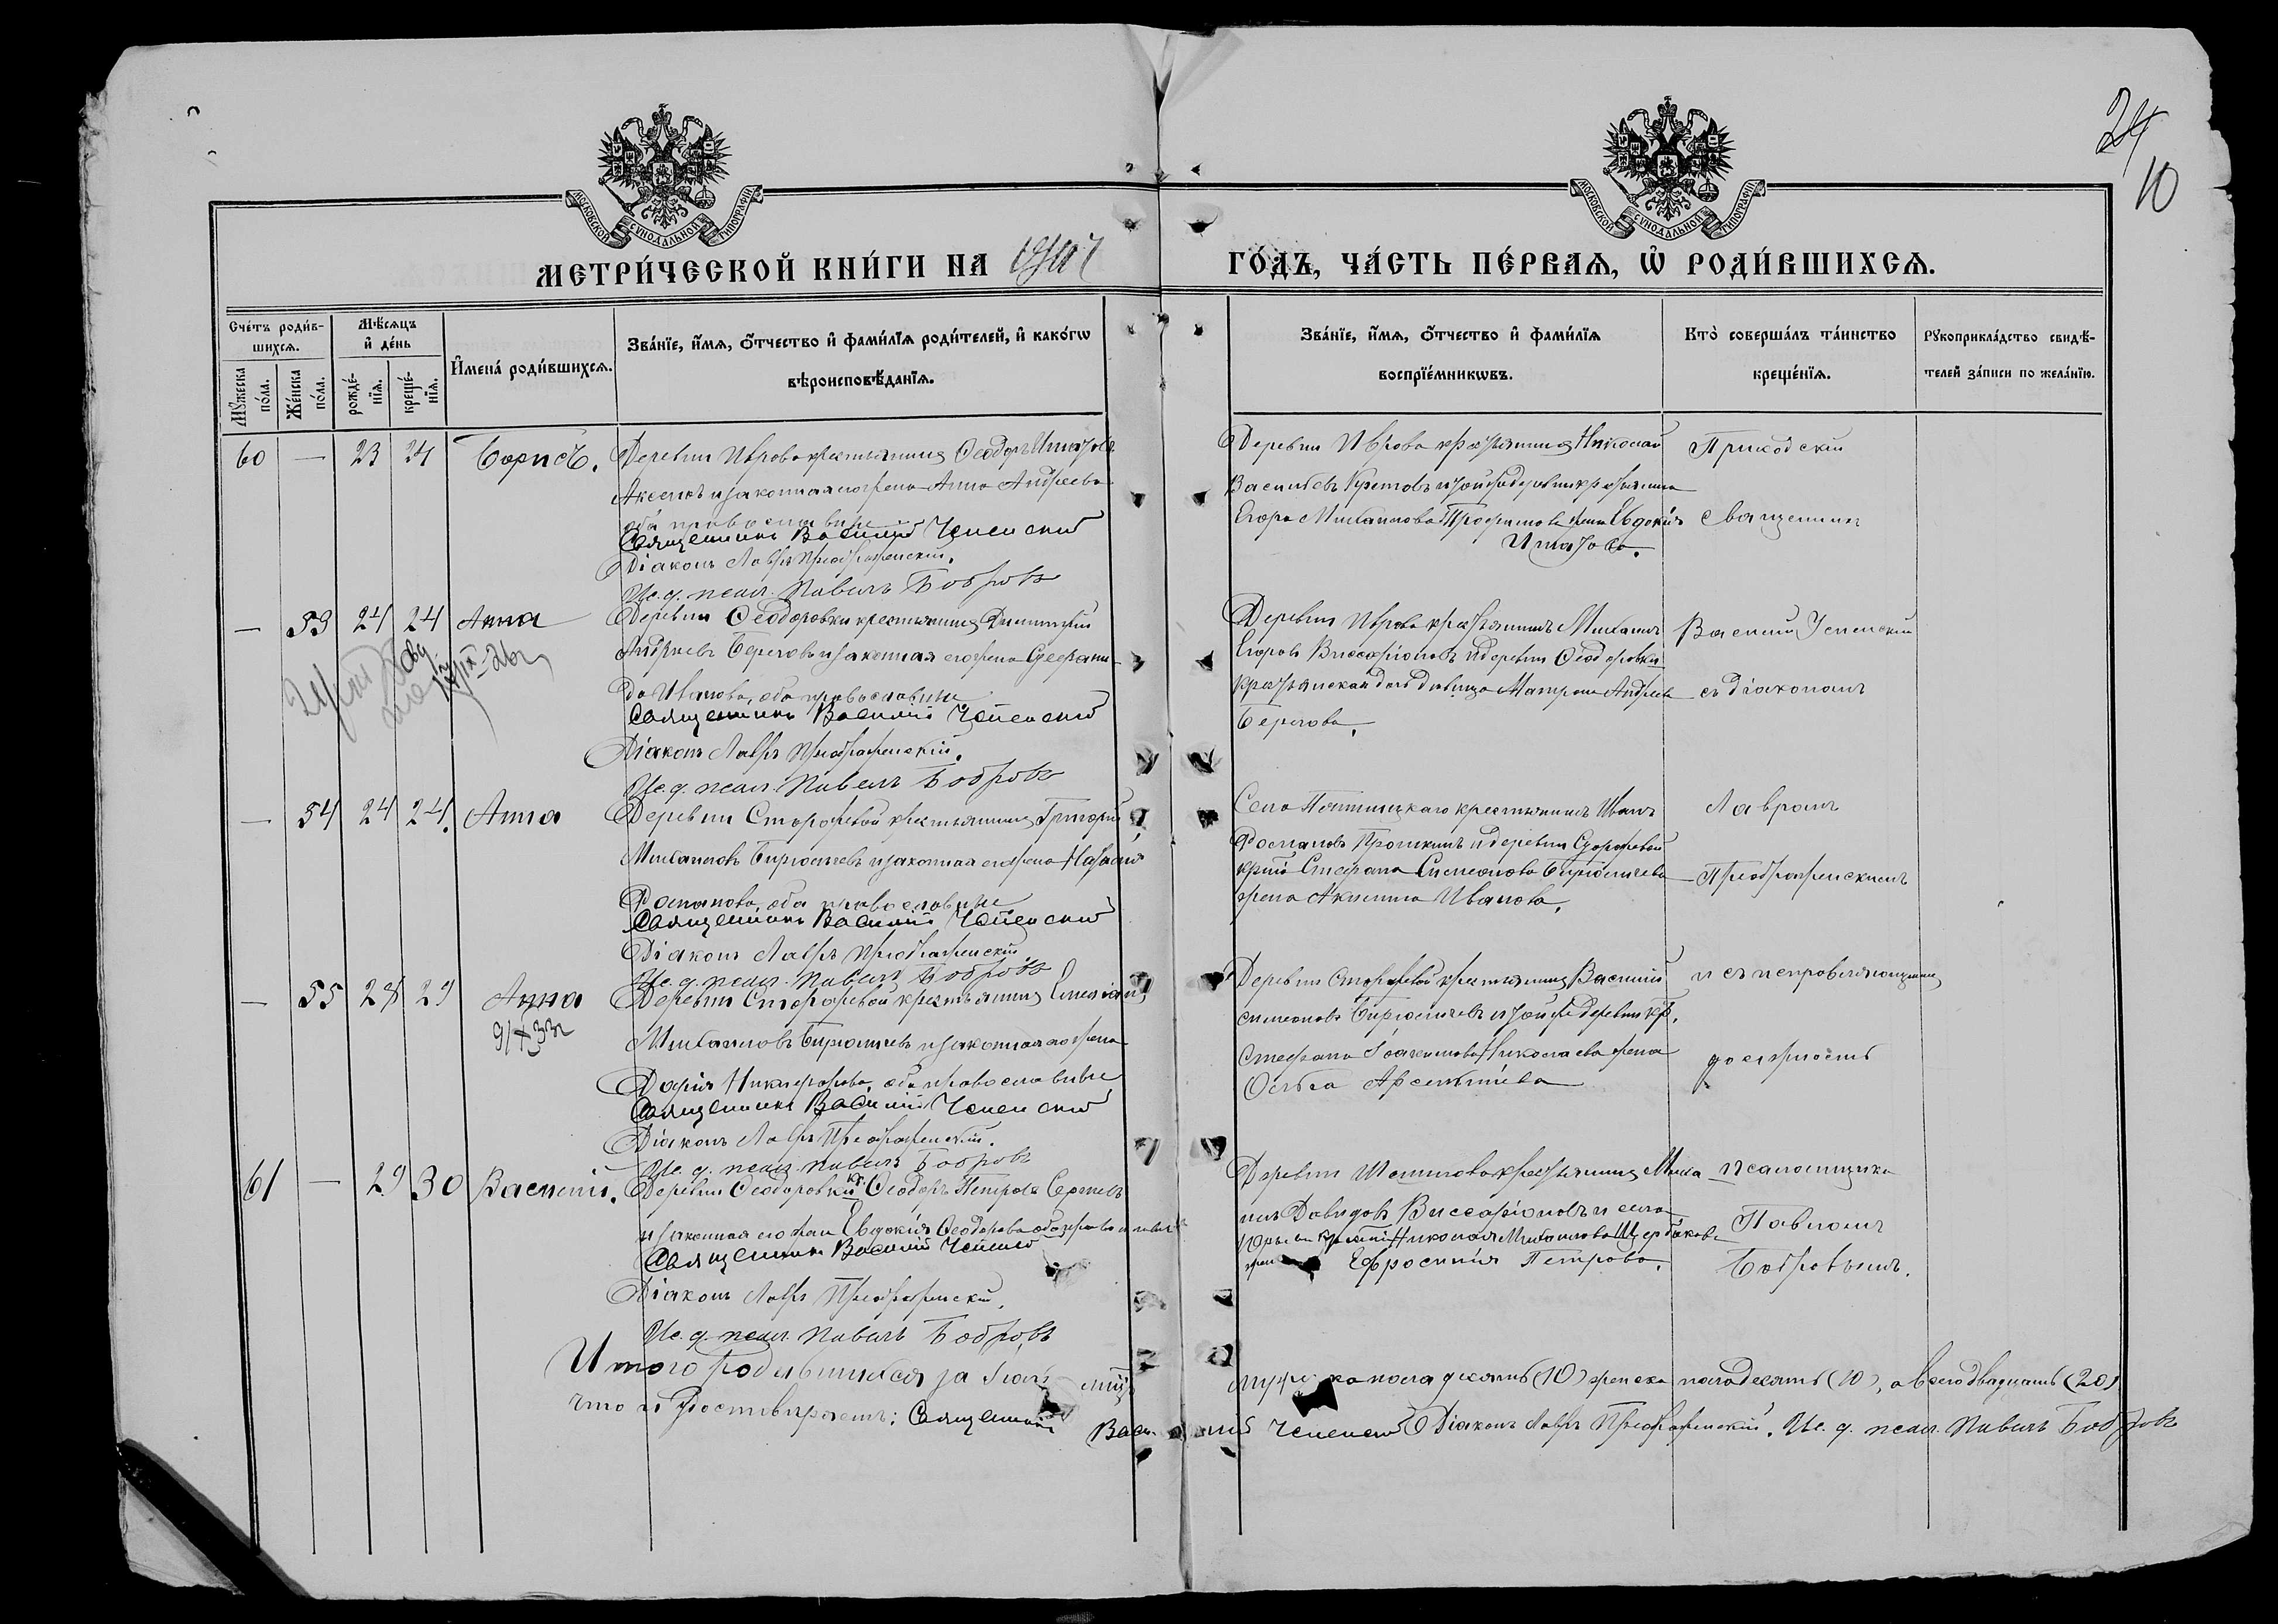 24
10
МОСКОВСКОЙ СУНОДАЛЬНОЙ ТИПОГРАФІИ
МОСКОВСКОЙ СУНОДАЛЬНОЙ ТИПОГРАФІИ
МЕТРИ́ЧЕСКОЙ КНИ́ГИ НА 1907 ГО́ДЪ, ЧА́СТЬ ПЕ́РВАѦ, Ѡ РОДИ́ВШИХСѦ.
Сче́тъ роди́в-
шихсѧ.
Мꙋ́жеска по́ла.
Же́нска по́ла.
Мѣ́сѧцъ и҆ де́нь
рожде́-
нїѧ.
креще́-
нїѧ.
И҆мена́ роди́вшихсѧ.
Зва́нїе, и҆́мѧ, ѻ҆́тчество и҆ фами́лїѧ роди́телей, и҆ како́гѡ
вѣроисповѣ́данїѧ.
Зва́нїе, и҆́мѧ, ѻ҆́тчество и҆ фами́лїѧ
воспрїе́мникѡвъ.
Кто̀ соверша́лъ та́инство
креще́нїѧ.
Рꙋкоприкла́дство свидѣ́-
телей за́писи по жела́нїю.
60 — 23 24 Борисъ. Деревни Иврова крестьянинъ Ѳеодоръ
и законная его жена Анна Андреева
оба православные
Священникъ Василій Успенскій
Діаконъ Лавръ Преображенскій.
Ис. д. псал. Павелъ Бобровъ
Деревни Иврова крестьянинъ Николай
Васильевъ и той же деревни крестьянина
Егора Михаилова жена Евдокія
Приходскій
священникъ
— 53 24 24 Анна Деревни Ѳеодоровки крестьянинъ Димитрій
Андреевъ Береговъ и законная его жена Стефани-
да Иванова, оба православные
Священникъ Василій Успенскій
Діаконъ Лавръ Преображенскій.
Ис. д. псал. Павелъ Бобровъ
Деревни Иврова крестьянинъ Михаилъ
Егоровъ Виссаріоновъ и деревни Ѳеодоровки
крестьянская дочь девица Матрона Андреева
Берегова.
Василій Успенскій
съ діакономъ
— 54 24 24. Анна Деревни Сторожевой крестьянинъ Григорій
Михаиловъ Бирюличевъ и законная его жена
Романова, оба православные
Священникъ Василій Успенскій
Діаконъ Лавръ Преображенскій
Ис. д. псал. Павелъ Бобровъ
Села Пятницкаго крестьянинъ Иванъ
Романовъ и деревни Сторожевой
Стефана Симеонова Бирюличева
жена Акилина Иванова.
Лавромъ
Преображенскимъ
— 55 28 29 Анна Деревни Сторожевой крестьянинъ Симеонъ
Михаиловъ Бирюличевъ и законная его жена
Дарія Никифорова, оба православные
Священникъ Василій Успенскій
Діаконъ Лавръ Преображенскій.
Ис. д. псал. Павелъ Бобровъ
Деревни Сторожевой крестьянинъ Василій
Симеоновъ Бирюличевъ и той же деревни кр.
Стефана Іоакимова Николаева жена
Ольга Арсентіева
и съ исправляющимъ
должность
61 — 29 30 Василій. Деревни Ѳеодоровки кр. Ѳеодоръ Петровъ Сергеевъ
и законная его жена Евдокія Ѳеодорова оба православные
Священникъ Василій Успенскій
Діаконъ Лавръ Преображенскій.
Ис. д. псал. Павелъ Бобровъ
Деревни крестьянинъ Миха
илъ Давидовъ Виссаріоновъ и села
Николая Михаилова Щербакова
жена Ефросинія Петрова.
псаломщика
Павломъ
Бобровымъ.
Итого родившихся за Іюль мцъ мужеска пола десять (10) женска пола десять (10), а всего двадцать (20)
что и удостоверяемъ: Священникъ Василій Успенскій Діаконъ Лавръ Преображенскій. Ис. д. псал. Павелъ Бобровъ